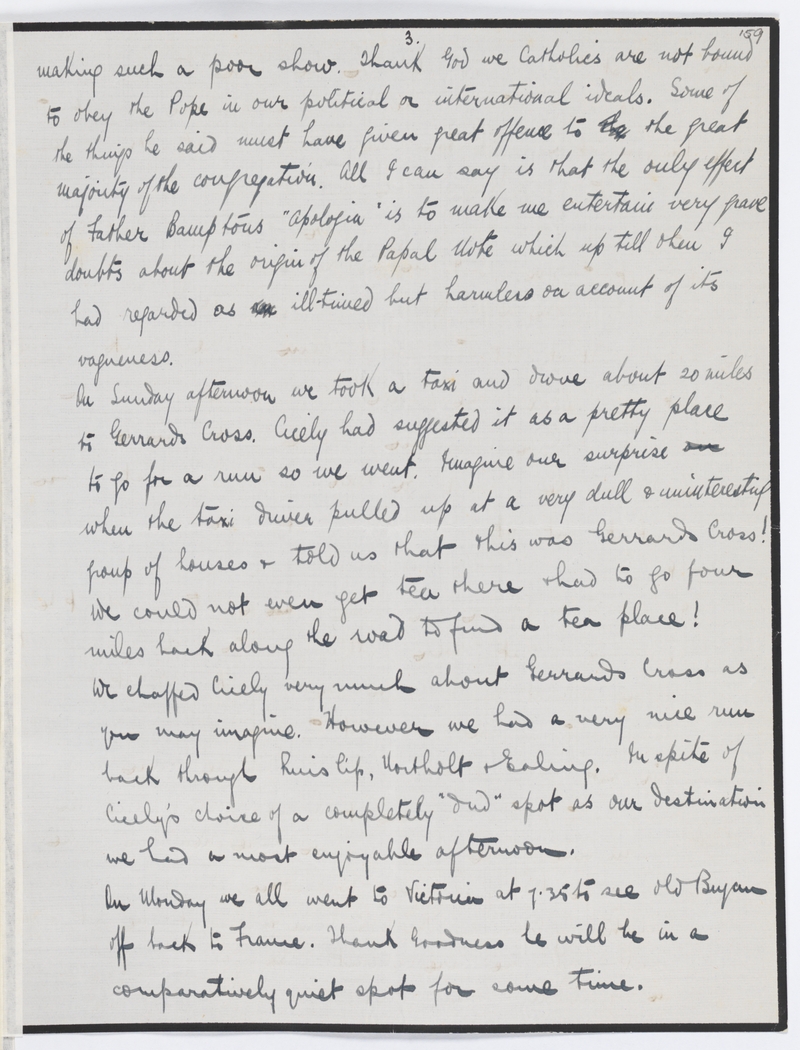 3.
159
making such a poor show. Thank God we Catholics are not bound
to obey the Pope in our political or international ideals. Some of
the things he said must have given great offence to the great
majority of the congregation. All I can say is that the only effect
of Father Bampton's "Apologia" is to make me entertain very grave
doubts about the origin of the Papal Note which up till then I
had regarded as ill-timed but harmless on account of its
vagueness.
On Sunday afternoon we took a taxi and drove about 20 miles
to Gerrards Cross. Cicely had suggested it as a pretty place
to go for a run so we went. Imagine our surprise
when the taxi driver pulled up at a very dull & uninteresting
group of houses & told us that this was Gerrards Cross!
We could not even get tea there & had to go four
miles back along the road to find a tea place!
We chaffed Cicely very much about Gerrards Cross as
you may imagine. However we had a very nice run
back through Ruislip, Northolt & Ealing. In spite of
Cicely's choice of a completely "dud" spot as our destination
we had a most enjoyable afternoon.
On Monday we all went to Victoria at 7.35 to see old Bryan
off back to France. Thank Goodness he will be in a
comparatively quiet spot for some time.